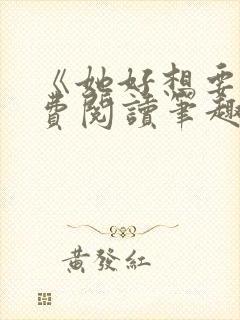 《她好想要
費閱讀筆趣
黃發紅